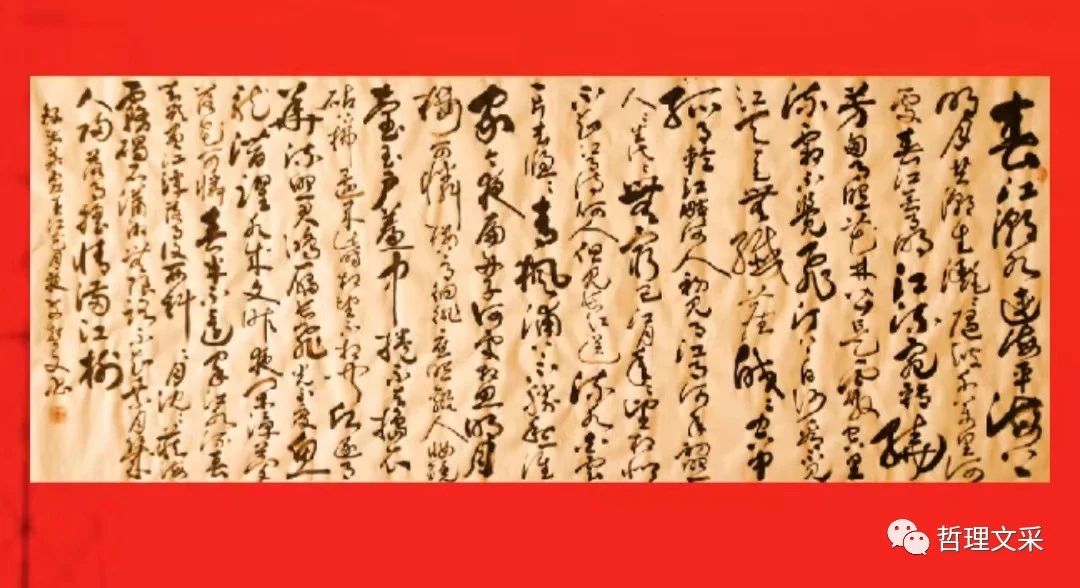 春江潮水連海平海上
明月共潮生灧灧隨波千萬里何
處春江無月明江流宛轉繞
芳甸月照花林皆似霰空里
流霜不覺飛汀上白沙看不見
江天一色無纖塵皎皎空中
孤月輪江畔何人初見月江月何年初照
人人生代代無窮已江月年年望相似
不知江月待何人但見長江送流水白雲
一片去悠悠青楓浦上不勝愁誰
家今夜扁舟子何處相思明月
樓可憐樓上月徘徊應照離人妝鏡
臺玉戶簾中捲不去搗衣
砧上拂還來此時相望不相聞願逐月
華流照君鴻雁長飛光不度魚
龍潛躍水成文昨夜閑潭夢
落花可憐春半不還家江水流春
去欲盡江潭落月復西斜斜月沉沉藏海
霧碣石瀟湘無限路不知乘月幾
人歸落月搖情滿江樹
哲理文采